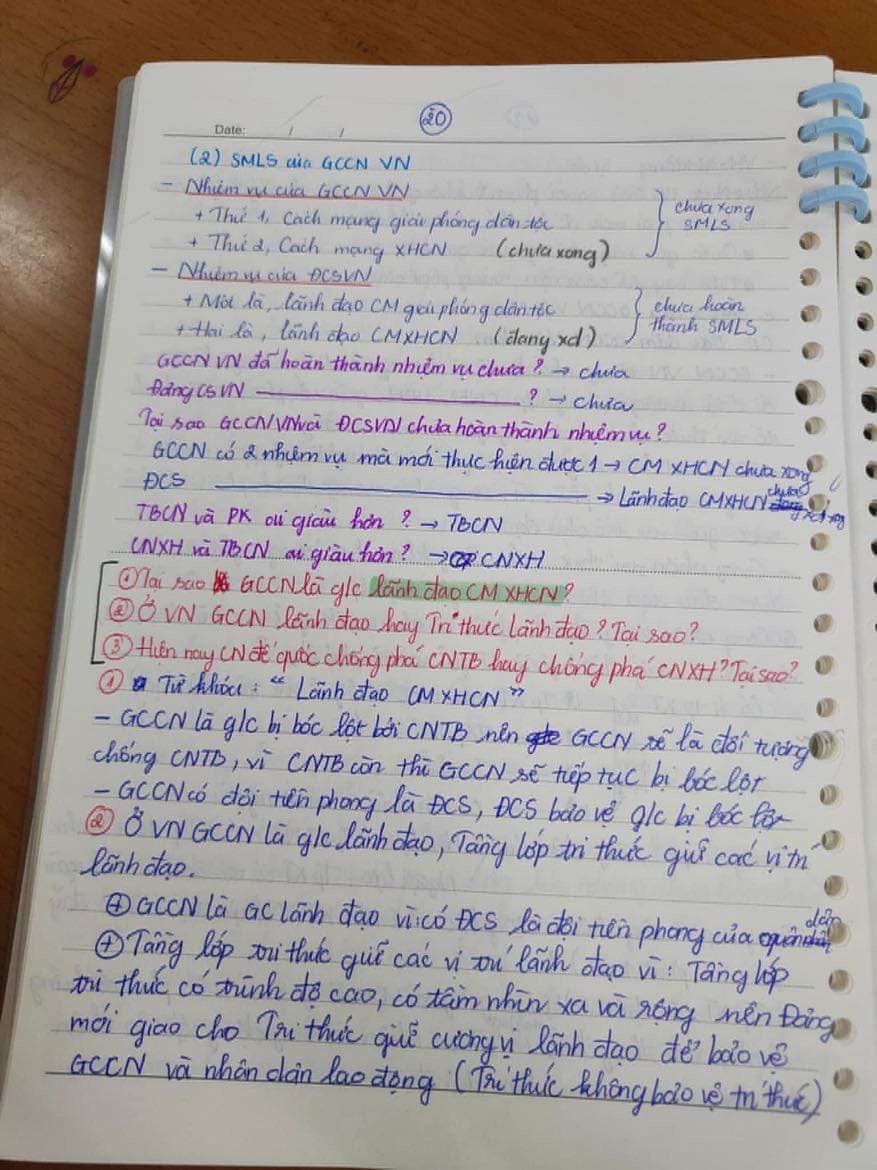 20
Date: / /
(2) SMLS của GCCN VN
- Nhiệm vụ của GCCN VN
+ Thứ 1, Cách mạng giải phóng dân tộc
+ Thứ 2, Cách mạng XHCN (chưa xong)
} chưa xong
SMLS
- Nhiệm vụ của ĐCSVN
+ Một là, lãnh đạo CM giải phóng dân tộc
+ Hai là, lãnh đạo CMXHCN (đang xd)
} chưa hoàn
thành SMLS
GCCN VN đã hoàn thành nhiệm vụ chưa? → chưa
Đảng CSVN ——— ? → chưa
Tại sao GCCNVN và ĐCSVN chưa hoàn thành nhiệm vụ?
GCCN có 2 nhiệm vụ mà mới thực hiện được 1 → CM XHCN chưa xong
ĐCS ——— → Lãnh đạo CMXHCN chưa xong
TBCN và PK ai giàu hơn? → TBCN
CNXH và TBCN ai giàu hơn? → CNXH
① Tại sao GCCN là g/c lãnh đạo CM XHCN?
② Ở VN GCCN lãnh đạo hay Tri thức lãnh đạo? Tại sao?
③ Hiện nay CN đế quốc chống phá CNTB hay chống phá CNXH? Tại sao?
① Từ khóa: "Lãnh đạo CMXHCN"
- GCCN là g/c bị bóc lột bởi CNTB nên GCCN sẽ là đối tượng
chống CNTB, vì CNTB còn thì GCCN sẽ tiếp tục bị bóc lột
- GCCN có đội tiên phong là ĐCS, ĐCS bảo vệ g/c bị bóc lột
② Ở VN GCCN là g/c lãnh đạo, Tầng lớp tri thức giữ các vị trí
lãnh đạo.
⊕ GCCN là GC lãnh đạo vì: có ĐCS là đội tiên phong của dân
⊕ Tầng lớp tri thức giữ các vị trí lãnh đạo vì: Tầng lớp
tri thức có trình độ cao, có tầm nhìn xa và rộng nên Đảng
mới giao cho Tri thức giữ cương vị lãnh đạo để bảo vệ
GCCN và nhân dân lao động (Tri thức không bảo vệ tri thức)